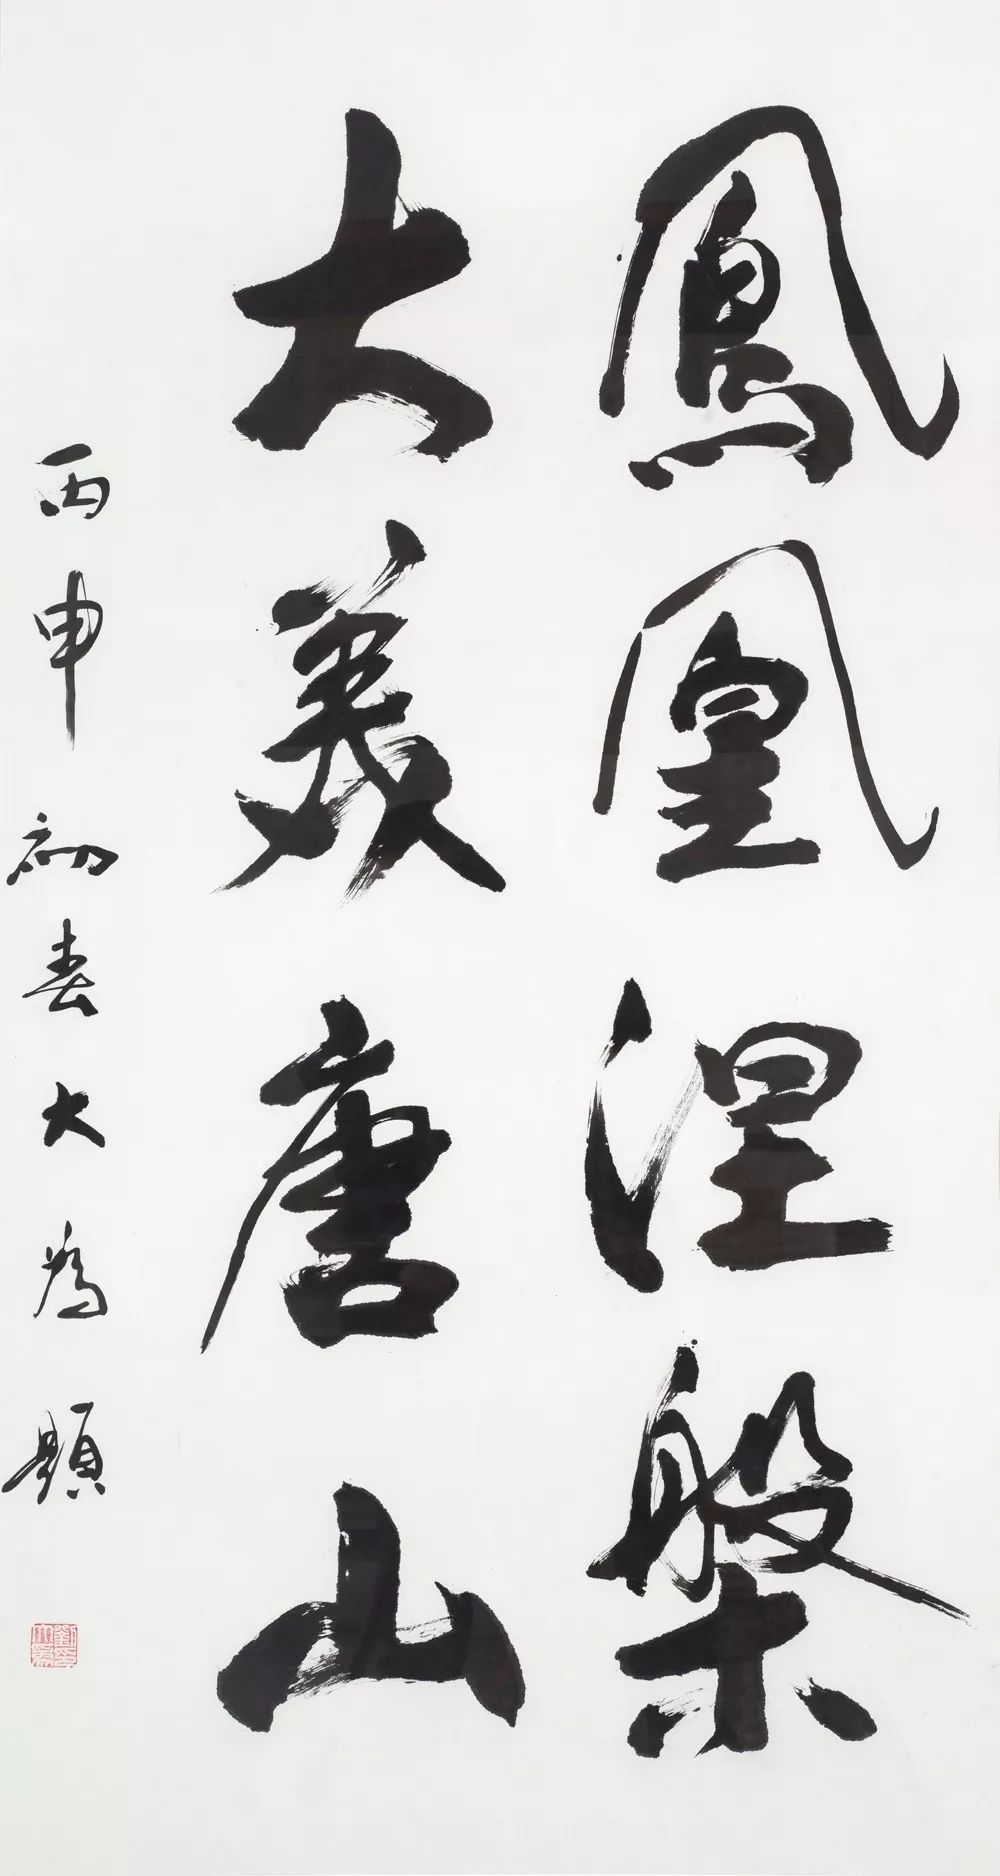 鳳凰涅槃
大美唐山
丙申初春大為題